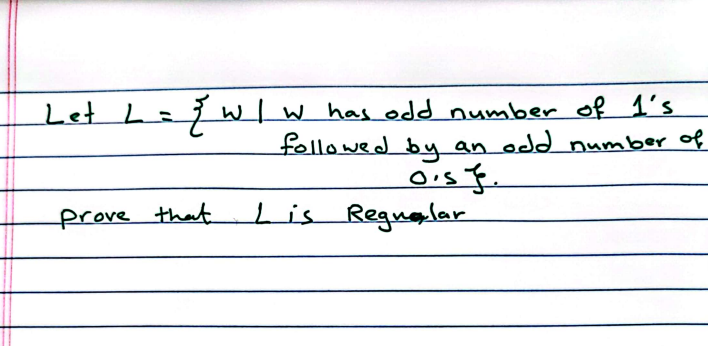 Let L = { w | w has odd number of 1's
followed by an odd number of
0's }.
prove that L is Regualar